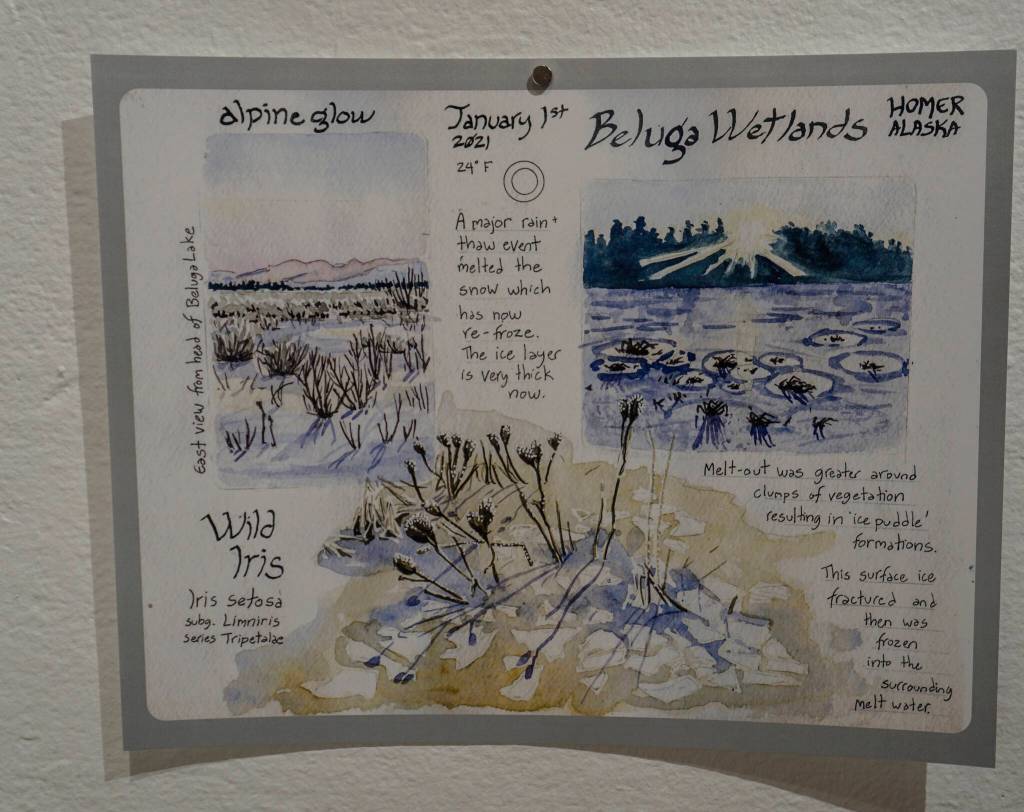 alpine glow
East view from head of Beluga Lake
January 1st
2021
24° F
A major rain +
thaw event
melted the
snow which
has now
re-froze.
The ice layer
is very thick
now.
Beluga Wetlands
HOMER
ALASKA
Melt-out was greater around
clumps of vegetation
resulting in 'ice puddle'
formations.
This surface ice
fractured and
then was
frozen
into the
surrounding
melt water.
Wild
Iris
Iris setosa
subg. Limniris
series Tripetalae